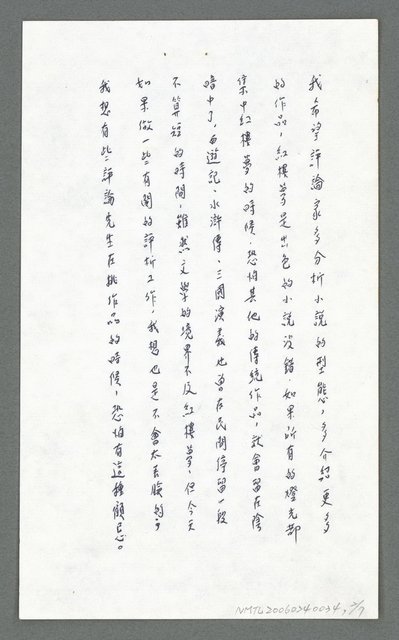 我希望評論家多分析小說的型態，多介紹更多
的作品，紅樓夢是出色的小說沒錯．如果所有的燈光都
集中紅樓夢的時候．恐怕其他的傳統作品，就會留在陰
暗中了，西遊記、水滸傳、三國演義也曾在民間停留一段
不算短的時間，雖然文學的境界不及紅樓夢，但今天
如果做一些有關的評析工作，我想也是不會太丟臉的，
我想有些評論先生在挑作品的時候，恐怕有這種顧忌。
NMTL20060240034, 2/7